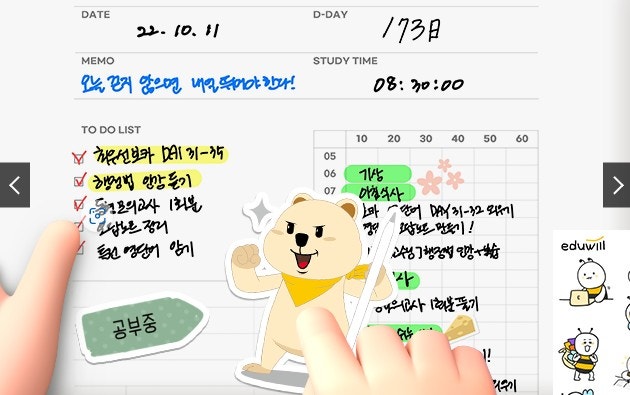 DATE
22.10.11
D-DAY
173日
MEMO
오늘 걷지 않으면 내일 뛰어야 한다!
STUDY TIME
08:30:00
TO DO LIST
최우선보카 DAY 31-35
행정법 인강 듣기
모의고사 1회분
오답노트 정리
영단어 암기
10 20 30 40 50 60
05
06 기상
07 아침식사
DAY 31-32 외우기
오답노트 만들기!
행정법 인강
1회분 풀기
공부중
eduwill